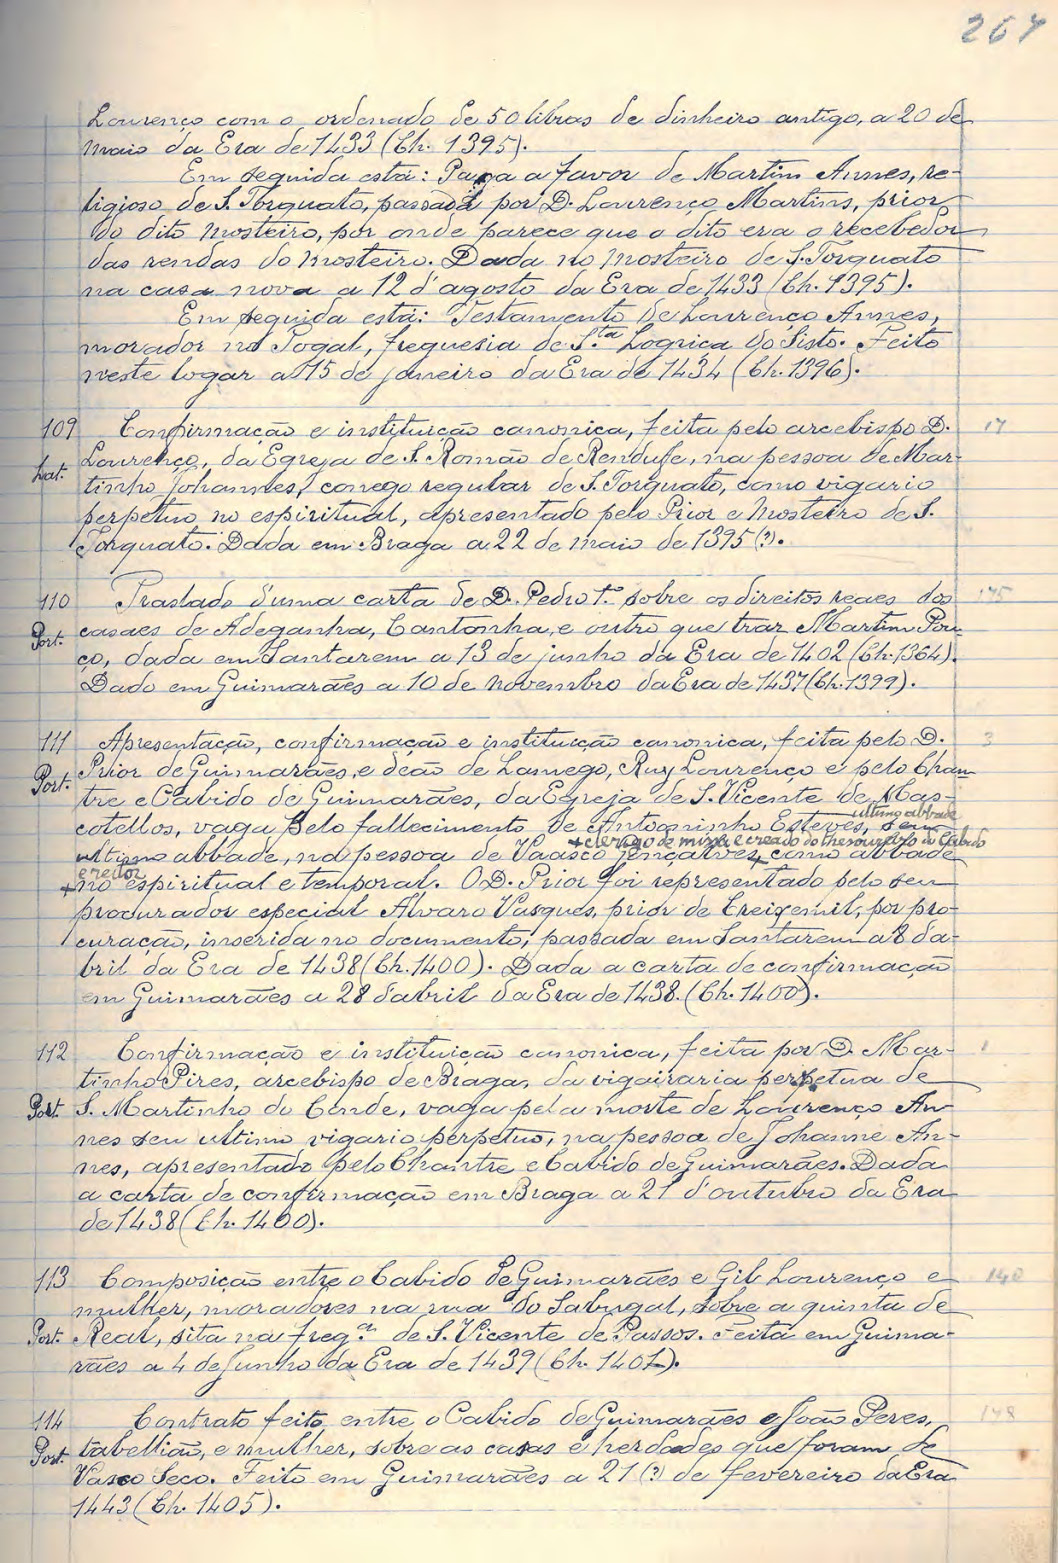 267
Lourenço com o ordenado de 50 libras de dinheiro antigo, a 20 de
maio da Era de 1433 (Ch. 1395).
Em seguida está: Paga a favor de Martim Annes, re-
ligioso de S. Torquato, passada por D. Lourenço Martins, prior
do dito mosteiro, por onde parece que o dito era o recebedor
das rendas do mosteiro. Dada no mosteiro de S. Torquato
na casa nova a 12 d'agosto da Era de 1433 (Ch. 1395).
Em seguida está: Testamento de Lourenço Annes,
morador no Togal, freguesia de S.ta Logriça do Sisto. Feito
neste logar a 15 de janeiro da Era de 1434 (Ch. 1396).
109 Confirmação e instituição canonica, feita pelo arcebispo D. 17
Lat. Lourenço, da Egreja de S. Romão de Rendufe, na pessoa de Mar-
tinho Johannes, conego regular de S. Torquato, como vigario
perpetuo no espiritual, apresentado pelo Prior e Mosteiro de S.
Torquato. Dada em Braga a 22 de maio de 1395 (?).
110 Traslado d'uma carta de D. Pedro 1.º sobre os direitos reaes dos 175
Port. casaes de Adeganha, Cantonha, e outro que traz Martim Pou-
ço, dada em Santarem a 13 de junho da Era de 1402 (Ch. 1364).
Dado em Guimarães a 10 de novembro da Era de 1437 (Ch. 1399).
111 Apresentação, confirmação e instituição canonica, feita pelo D. 3
Port. Prior de Guimarães, e deão de Lamego, Ruy Lourenço e pelo Chan-
tre e Cabido de Guimarães, da Egreja de S. Vicente de Mas-
ultimo abbade
cotellos, vaga pelo fallecimento de Antoninho Esteves, seu
+ clerigo de missa e creado do thesoureiro do Cabido
ultimo abbade, na pessoa de Vaasco Gonçalves, + como abbade
e reitor
+ no espiritual e temporal. O D. Prior foi representado pelo seu
procurador especial Alvaro Vasques, prior de Creixemil, por pro-
curação, inserida no documento, passada em Santarem a 8 da-
bril da Era de 1438 (Ch. 1400). Dada a carta de confirmação
em Guimarães a 28 d'abril da Era de 1438. (Ch. 1400).
112 Confirmação e instituição canonica, feita por D. Mar- 1
tinho Pires, arcebispo de Braga, da vigairaria perpetua de
Port. S. Martinho do Conde, vaga pela morte de Lourenço An-
nes seu ultimo vigario perpetuo, na pessoa de Johanne An-
nes, apresentado pelo Chantre e Cabido de Guimarães. Dada
a carta de confirmação em Braga a 21 d'outubro da Era
de 1438 (Ch. 1400).
113 Composição entre o Cabido de Guimarães e Gil Lourenço e 140
mulher, moradores na rua do Sabugal, sobre a quinta de
Port. Real, sita na freg.a de S. Vicente de Passos. Feita em Guima-
rães a 4 de Junho da Era de 1439 (Ch. 1401).
114 Contrato feito entre o Cabido de Guimarães e João Peres, 148
Port. tabellião, e mulher, sobre as casas e herdades que foram de
Vasco Seco. Feito em Guimarães a 21 (?) de fevereiro da Era
1443 (Ch. 1405).